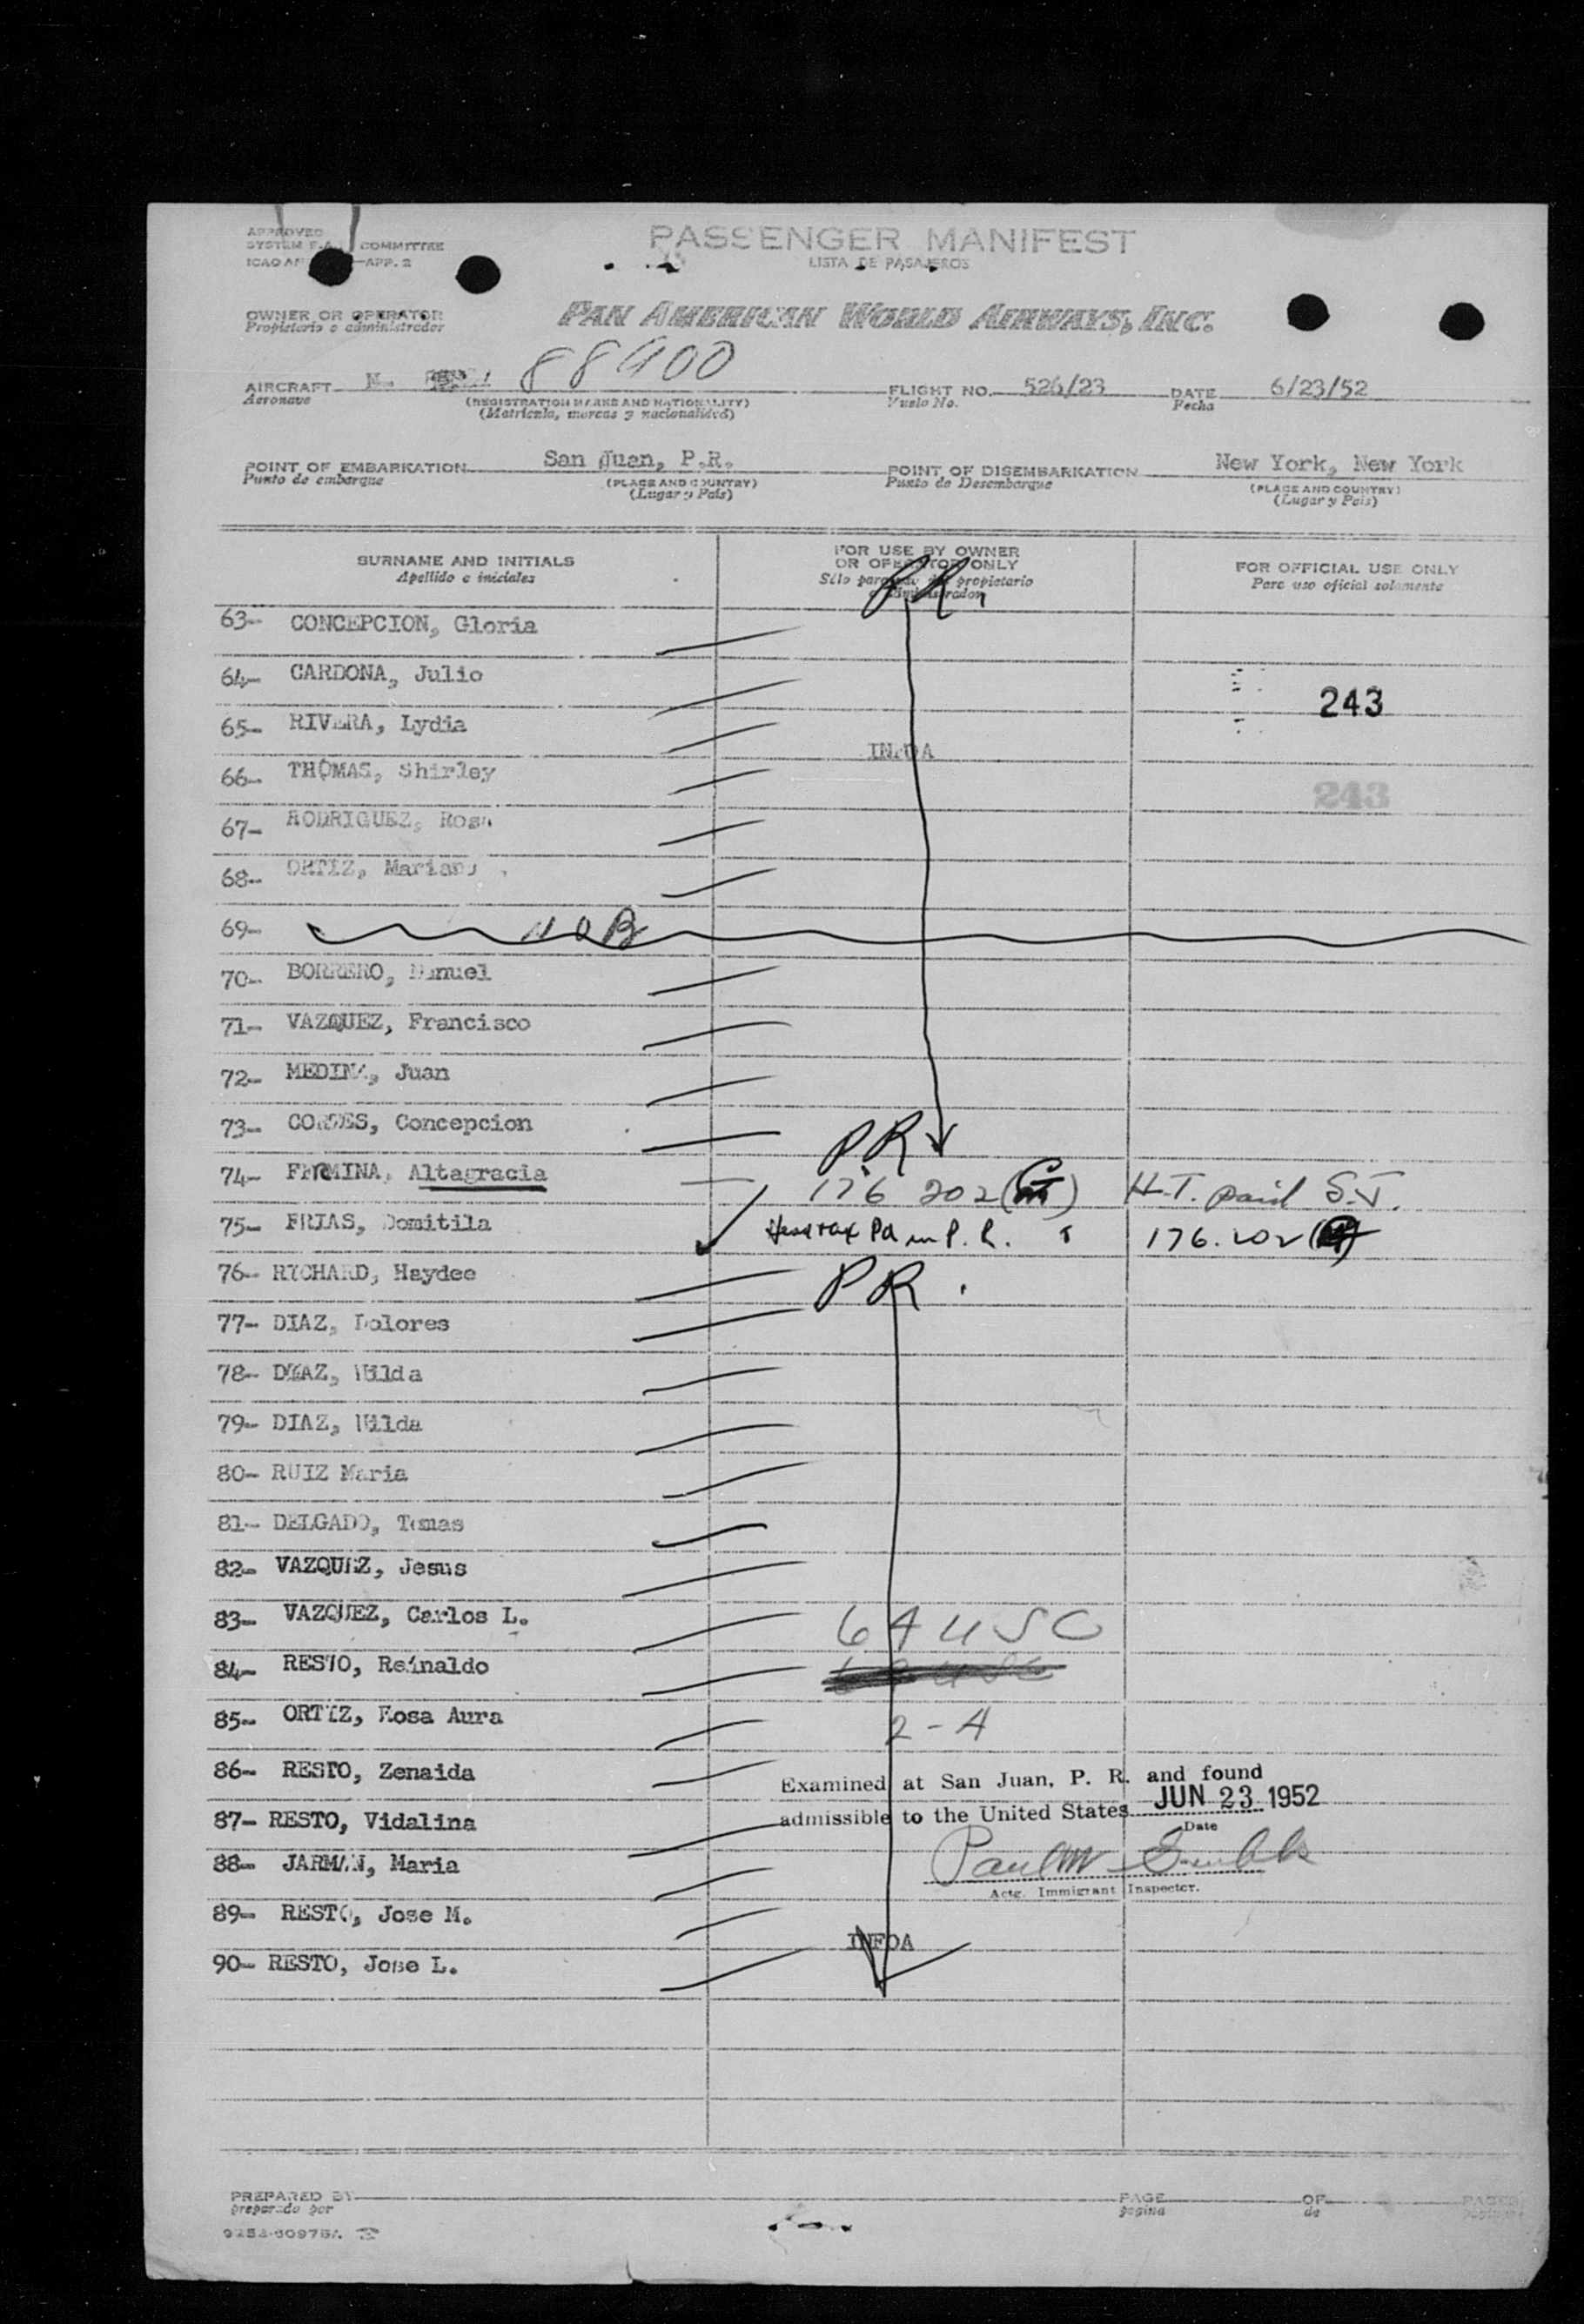 APPROVED
SYSTEM F.A. COMMITTEE
ICAO APP. 2
PASSENGER MANIFEST
LISTA DE PASAJEROS
OWNER OR OPERATOR
Propietario o administrador
PAN AMERICAN WORLD AIRWAYS, INC.
AIRCRAFT N. 88900
Aeronave
(REGISTRATION MARKS AND NATIONALITY)
(Matricula, marcas y nacionalidad)
FLIGHT NO. 526/23
Vuelo No.
DATE 6/23/52
Fecha
POINT OF EMBARKATION San Juan, P.R.
Punto de embarque
(PLACE AND COUNTRY)
(Lugar y País)
POINT OF DISEMBARKATION New York, New York
Punto de Desembarque
(PLACE AND COUNTRY)
(Lugar y País)
SURNAME AND INITIALS
Apellido e iniciales
FOR USE BY OWNER
OR OPERATOR ONLY
Sólo para uso del propietario
o administrador
FOR OFFICIAL USE ONLY
Para uso oficial solamente
P.R.
63- CONCEPCION, Gloria
64- CARDONA, Julio
243
65- RIVERA, Lydia
INFOA
66- THOMAS, Shirley
243
67- RODRIGUEZ, Rosa
68- ORTIZ, Mariano
69- NOB
70- BORRERO, Manuel
71- VAZQUEZ, Francisco
72- MEDINA, Juan
73- CORDES, Concepcion
P.R
74- FERMINA, Altagracia 176 202 H.T. paid S.J.
75- FRIAS, Domitila Head tax Pd in P.R. 176.202
76- RICHARD, Haydee PR.
77- DIAZ, Dolores
78- DIAZ, Wilda
79- DIAZ, Wilda
80- RUIZ Maria
81- DELGADO, Tomas
82- VAZQUEZ, Jesus
83- VAZQUEZ, Carlos L. 64 USC
84- RESTO, Reinaldo
85- ORTIZ, Rosa Aura 2-A
86- RESTO, Zenaida
Examined at San Juan, P. R. and found
admissible to the United States JUN 23 1952
Date
87- RESTO, Vidalina
88- JARMAN, Maria
Actg. Immigrant Inspector.
89- RESTO, Jose M.
INFOA
90- RESTO, Jose L.
PREPARED BY
preparado por
PAGE
pagina
OF
de
PAGES